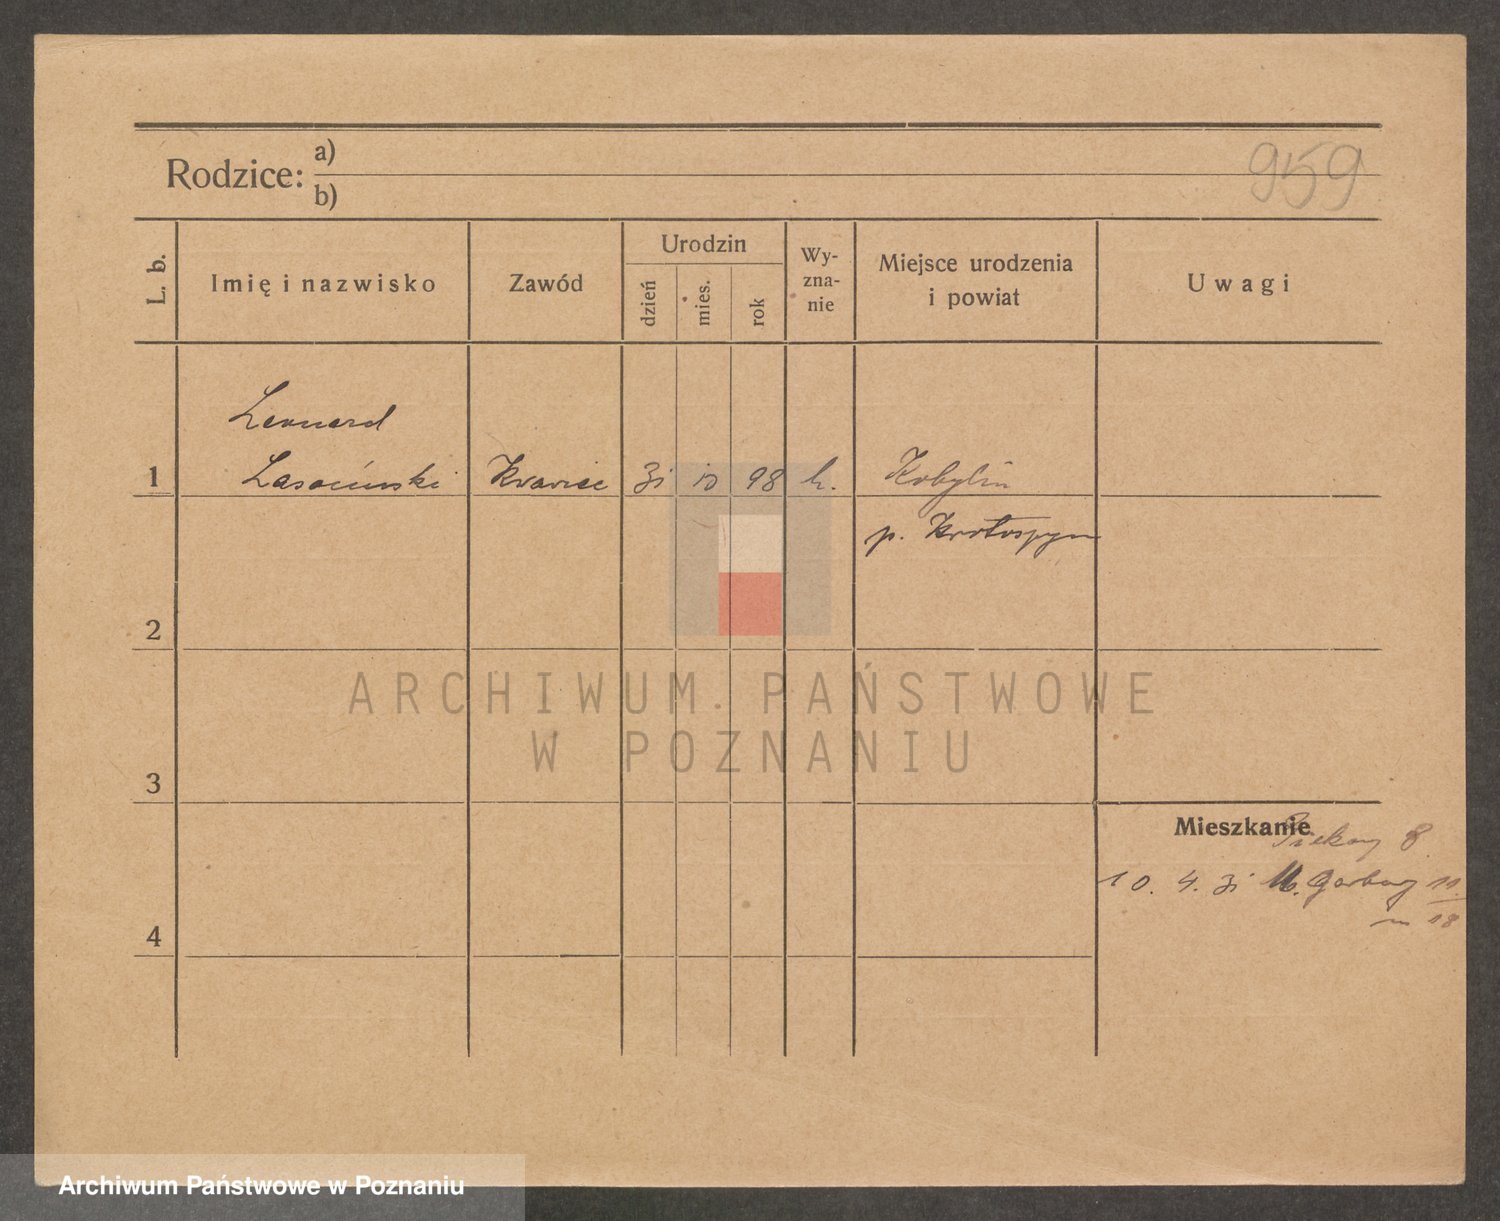 Rodzice:
a)
b)
959
L. b.
Imię i nazwisko
Zawód
Urodzin
dzień
mies.
rok
Wy-
zna-
nie
Miejsce urodzenia
i powiat
Uwagi
Leonard
1 Lasociński Krawiec 31 10 98 k. Kobylin
p. Krotoszyn
2
ARCHIWUM PAŃSTWOWE
W POZNANIU
3
Mieszkanie
Piekary 8
10. 4. 31 Garbary 11
m 18
4
Archiwum Państwowe w Poznaniu